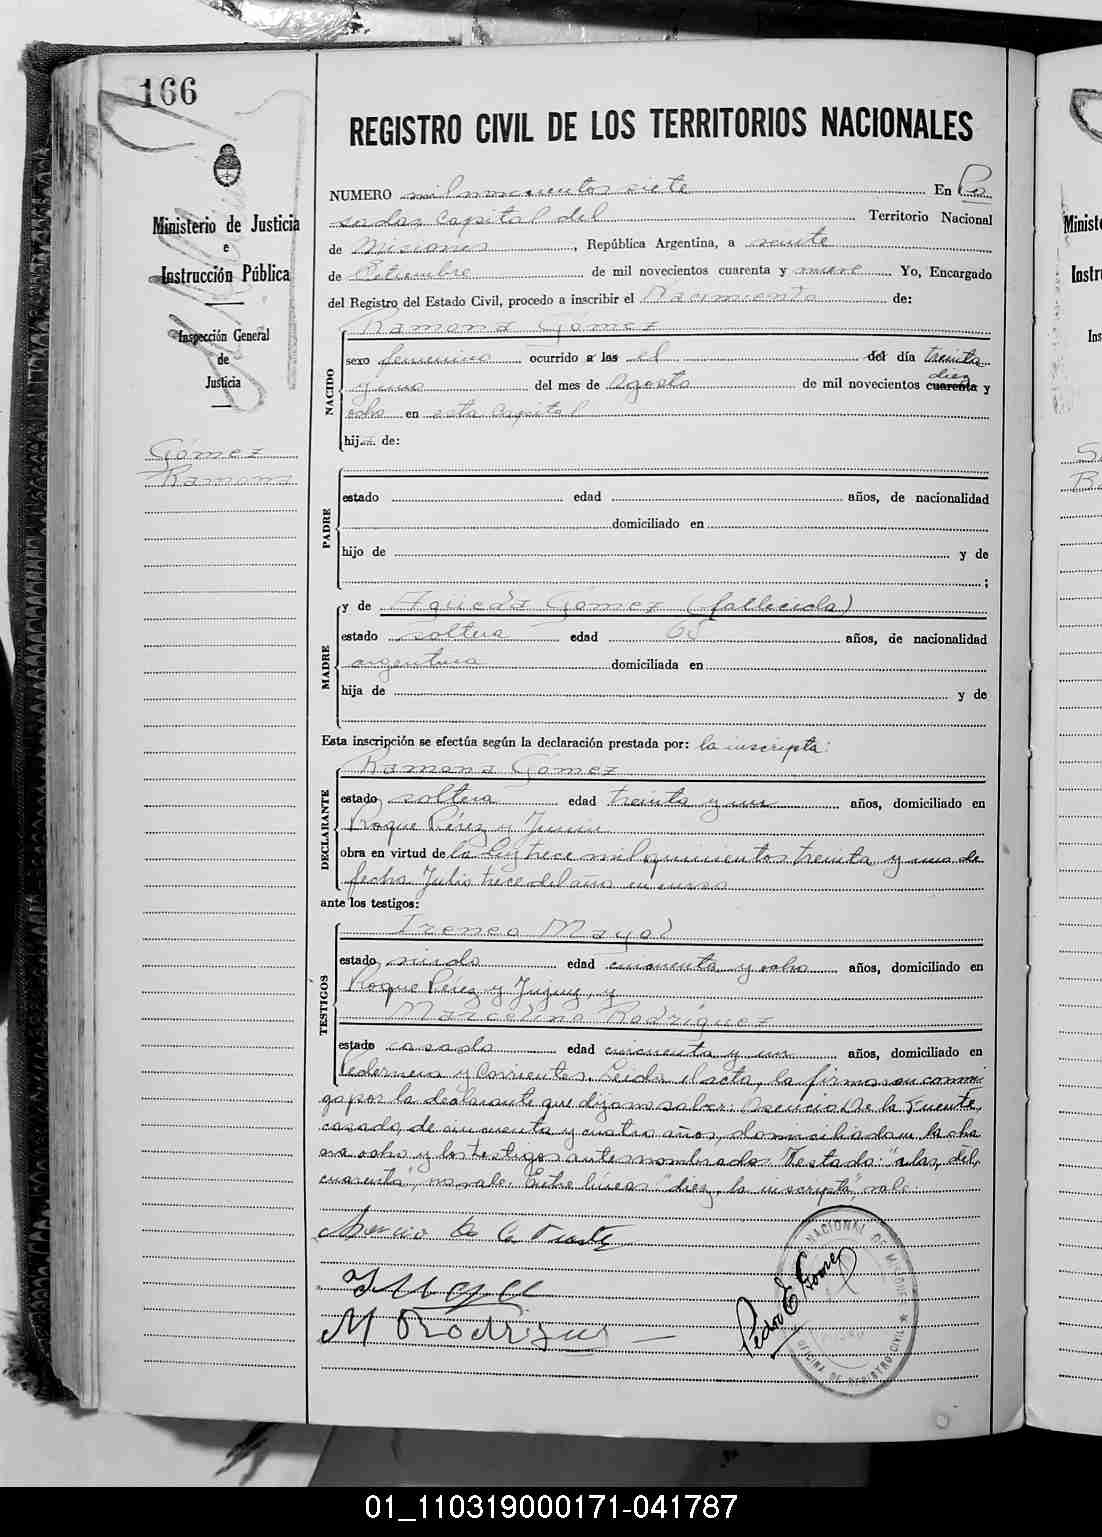 166
REGISTRO CIVIL DE LOS TERRITORIOS NACIONALES
Ministerio de Justicia
e
Instrucción Pública
Inspección General
de
Justicia
Gómez
Ramona
NUMERO mil novecientos siete En Po
sadas Capital del Territorio Nacional
de Misiones, República Argentina, a veinte
de Setiembre de mil novecientos cuarenta y nueve Yo, Encargado
del Registro del Estado Civil, procedo a inscribir el Nacimiento de:
Ramona Gómez
NACIDO
sexo femenino ocurrido a las el del día treinta
diez
y uno del mes de Agosto de mil novecientos cuarenta y
ocho en esta Capital
hija de:
PADRE
estado edad años, de nacionalidad
domiciliado en
hijo de y de
;
MADRE
y de Agueda Gómez (fallecida)
estado soltera edad 65 años, de nacionalidad
argentina domiciliada en
hija de y de
Esta inscripción se efectúa según la declaración prestada por: la inscripta:
DECLARANTE
Ramona Gómez
estado soltera edad treinta y un años, domiciliado en
Roque Pérez y Junín
obra en virtud de la Ley trece mil quinientos treinta y uno de
fecha Julio trece del año en curso
ante los testigos:
TESTIGOS
Ireneo Mayol
estado viudo edad cincuenta y ocho años, domiciliado en
Roque Pérez y Jujuy, y
Marcelino Rodríguez
estado casado edad cincuenta y un años, domiciliado en
Pedernera y Corrientes. Leida el acta, la firmaron conmi
go por la declarante que dijo no saber: Asencio De la Fuente,
casado, de cincuenta y cuatro años, domiciliado en la cha
cra ocho y los testigos antes nombrados. Testado: "a las, del,
cuarenta", no vale. Entre líneas "diez, la inscripta" vale.
Asencio De la Fuente
I Mayol
M Rodriguez
Pedro E Gomez
OFICINA DE REGISTRO CIVIL
01_110319000171-041787